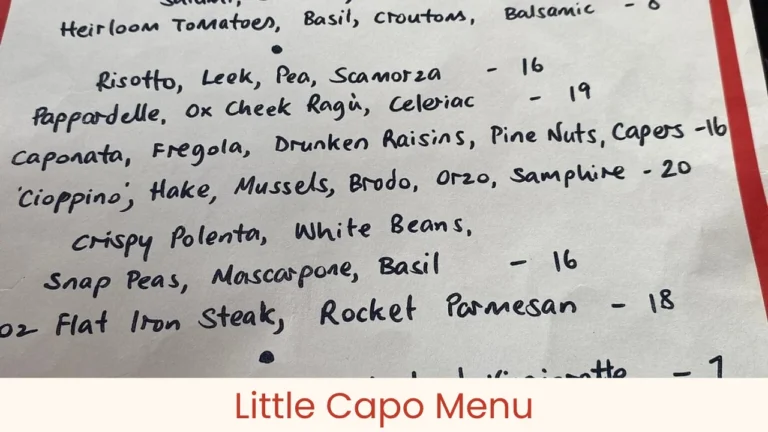 Heirloom Tomatoes, Basil, Croutons, Balsamic - 8
Risotto, Leek, Pea, Scamorza - 16
Pappardelle, Ox Cheek Ragù, Celeriac - 19
Caponata, Fregola, Drunken Raisins, Pine Nuts, Capers -16
'Cioppino', Hake, Mussels, Brodo, Orzo, Samphire - 20
Crispy Polenta, White Beans,
Snap Peas, Mascarpone, Basil - 16
oz Flat Iron Steak, Rocket Parmesan - 18
Little Capo Menu